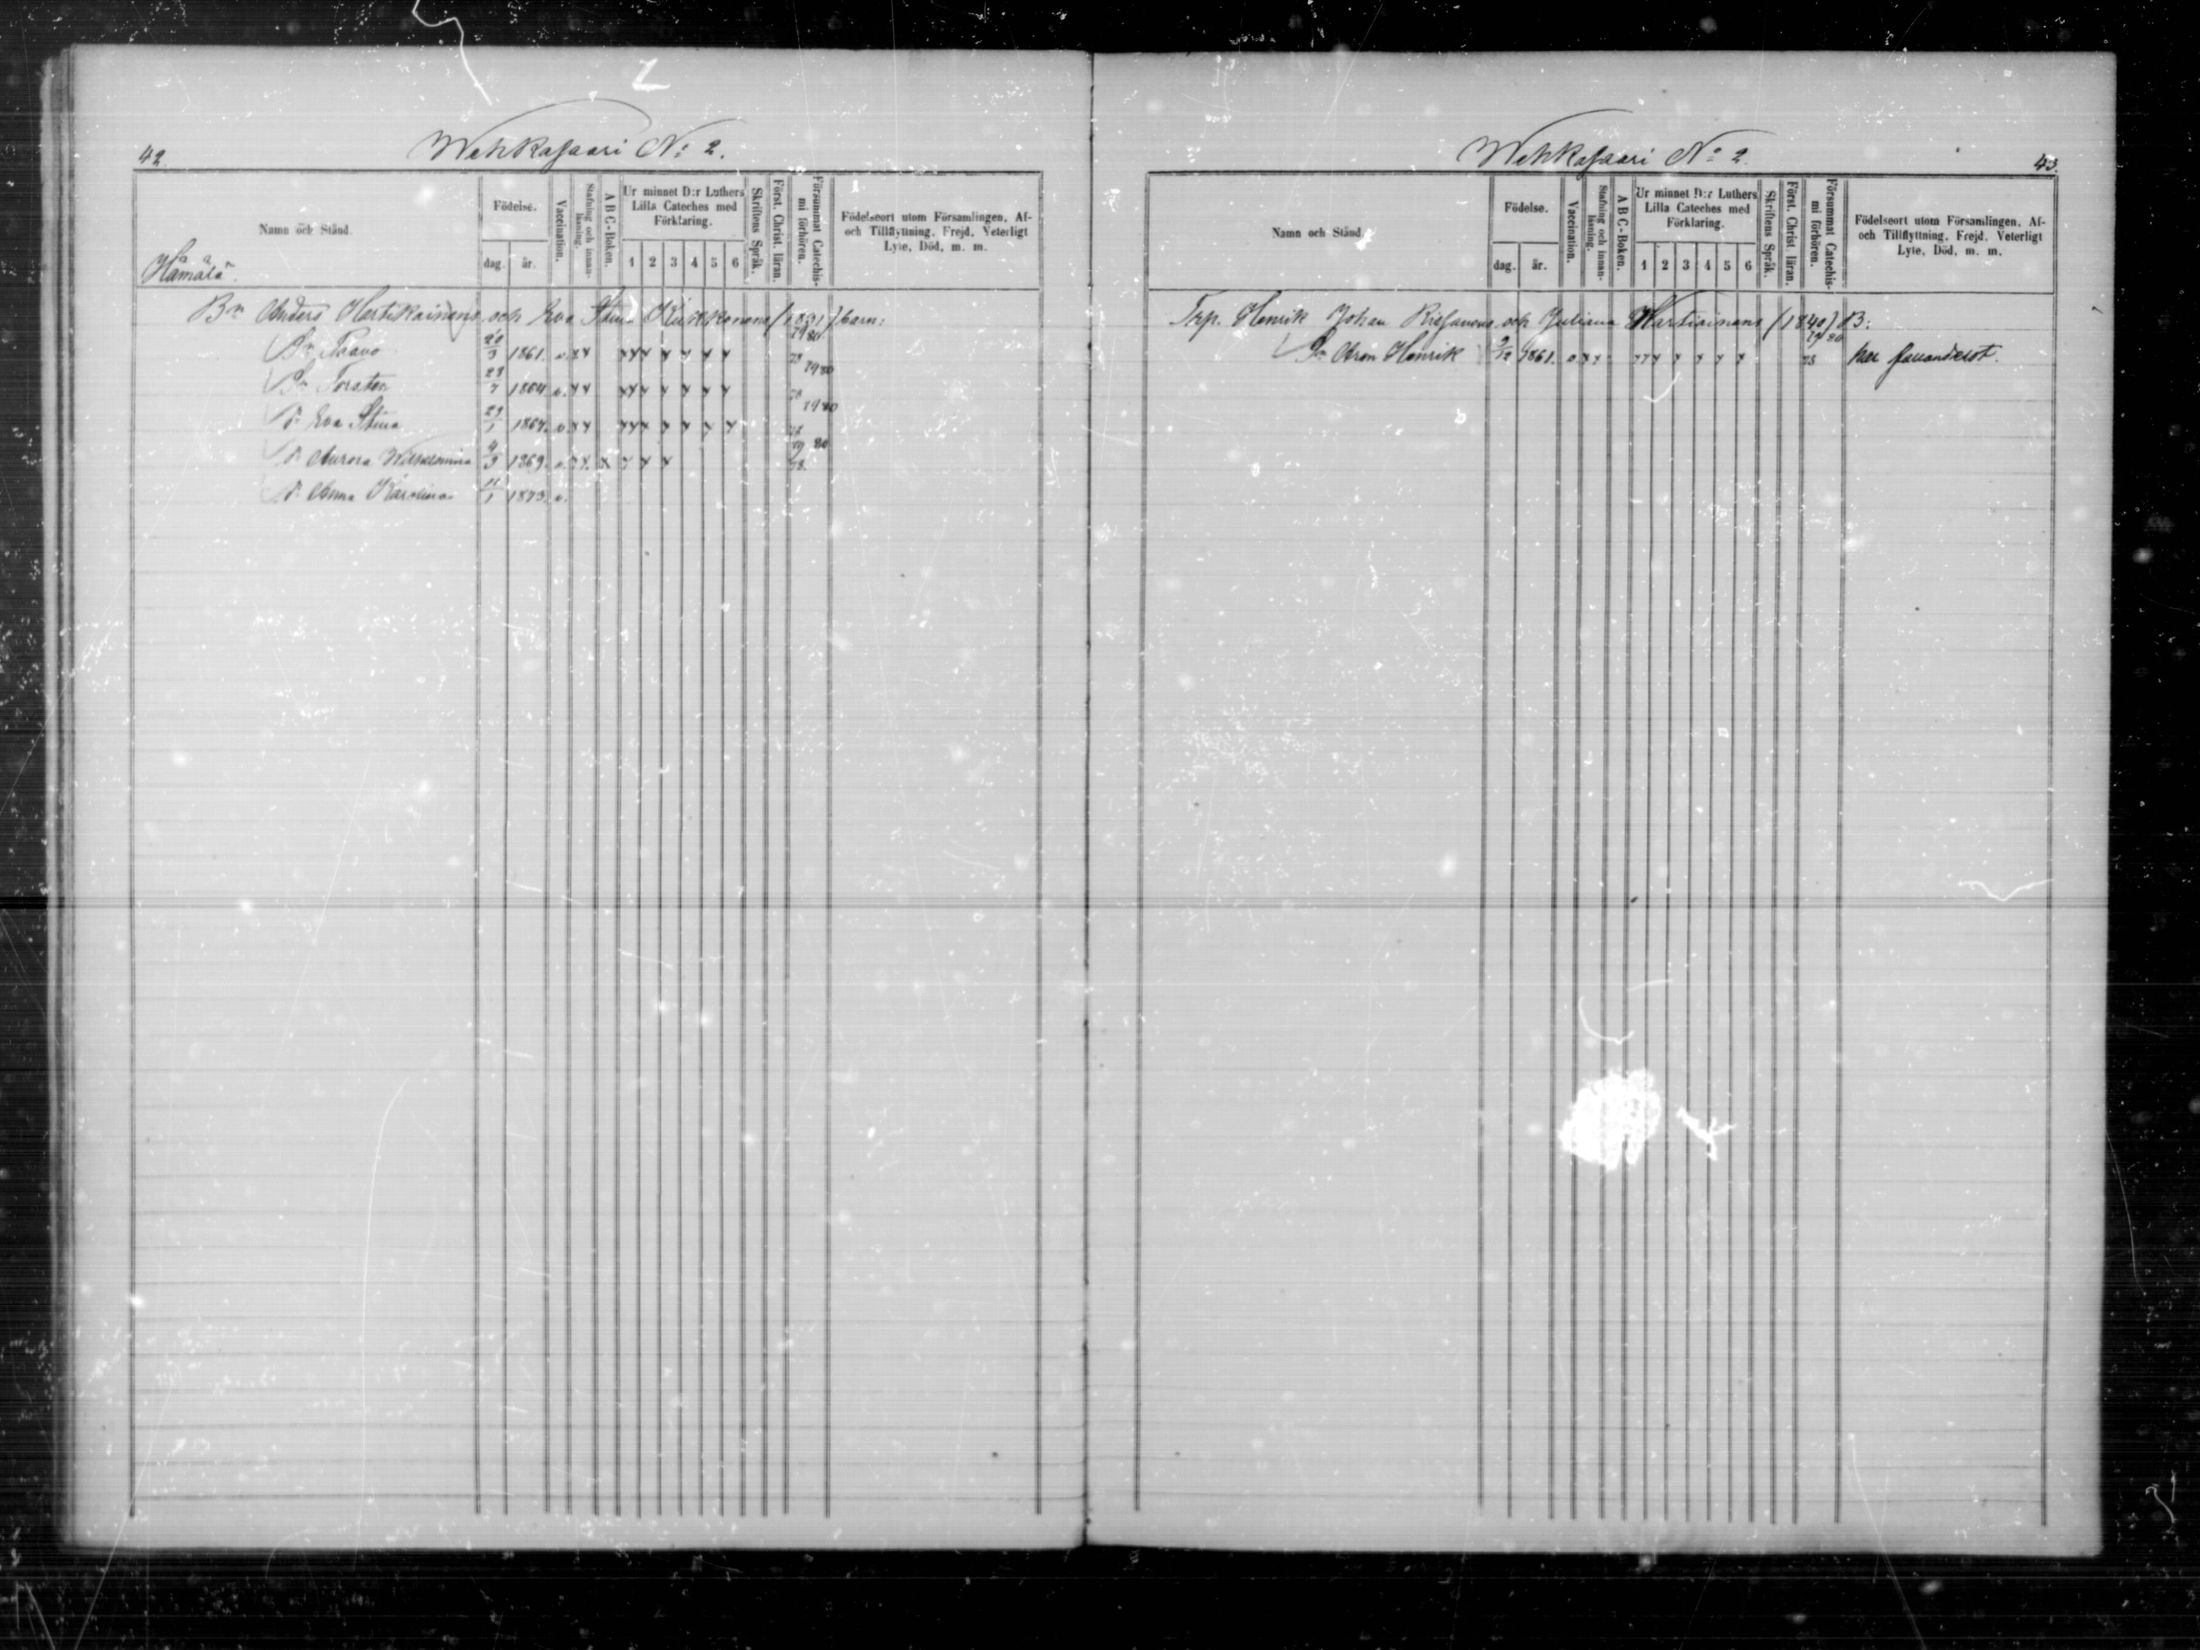 42. Wehkasaari No 2.
Namn och Stånd.
Födelse.
dag. år.
Vaccination.
Stafning och innanläsning.
A B C-Boken.
Ur minnet D:r Luthers Lilla Cateches med Förklaring.
1 2 3 4 5 6
Skriftens Språk.
Först. Christ. läran.
Försummat Catechismi förhören.
Födelseort utom Församlingen, Af- och Tillflyttning, Frejd, Veterligt Lyte, Död, m. m.
Hämälä.
Bn Anders Hartikainens och Eva Stina Kukkonens (1831) barn:
Sn Paavo 20/3 1861. v. x x x x x x x x x 78 79 80
Sn Torsten 28/7 1864 v. x x x x x x x x x 78 79 80
Dr Eva Stina 29/1 1867. v. x x x x x x x x x 78 79 80
Dr Aurora Wilhelmina 4/3 1869. v. x x. x x x x 78.
Dr Anna Karolina 11/1 1873. v.
Wehkasaari No 2. 43.
Namn och Stånd.
Födelse.
dag. år.
Vaccination.
Stafning och innanläsning.
A B C-Boken.
Ur minnet D:r Luthers Lilla Cateches med Förklaring.
1 2 3 4 5 6
Skriftens Språk.
Först. Christ. läran.
Försummat Catechismi förhören.
Födelseort utom Församlingen, Af- och Tillflyttning, Frejd, Veterligt Lyte, Död, m. m.
Trp. Henrik Johan Rissanens och Juliana Martiainens (1840) B:
Sn Aron Henrik 9/12 1861. v x x x x x x x x 78 79 80